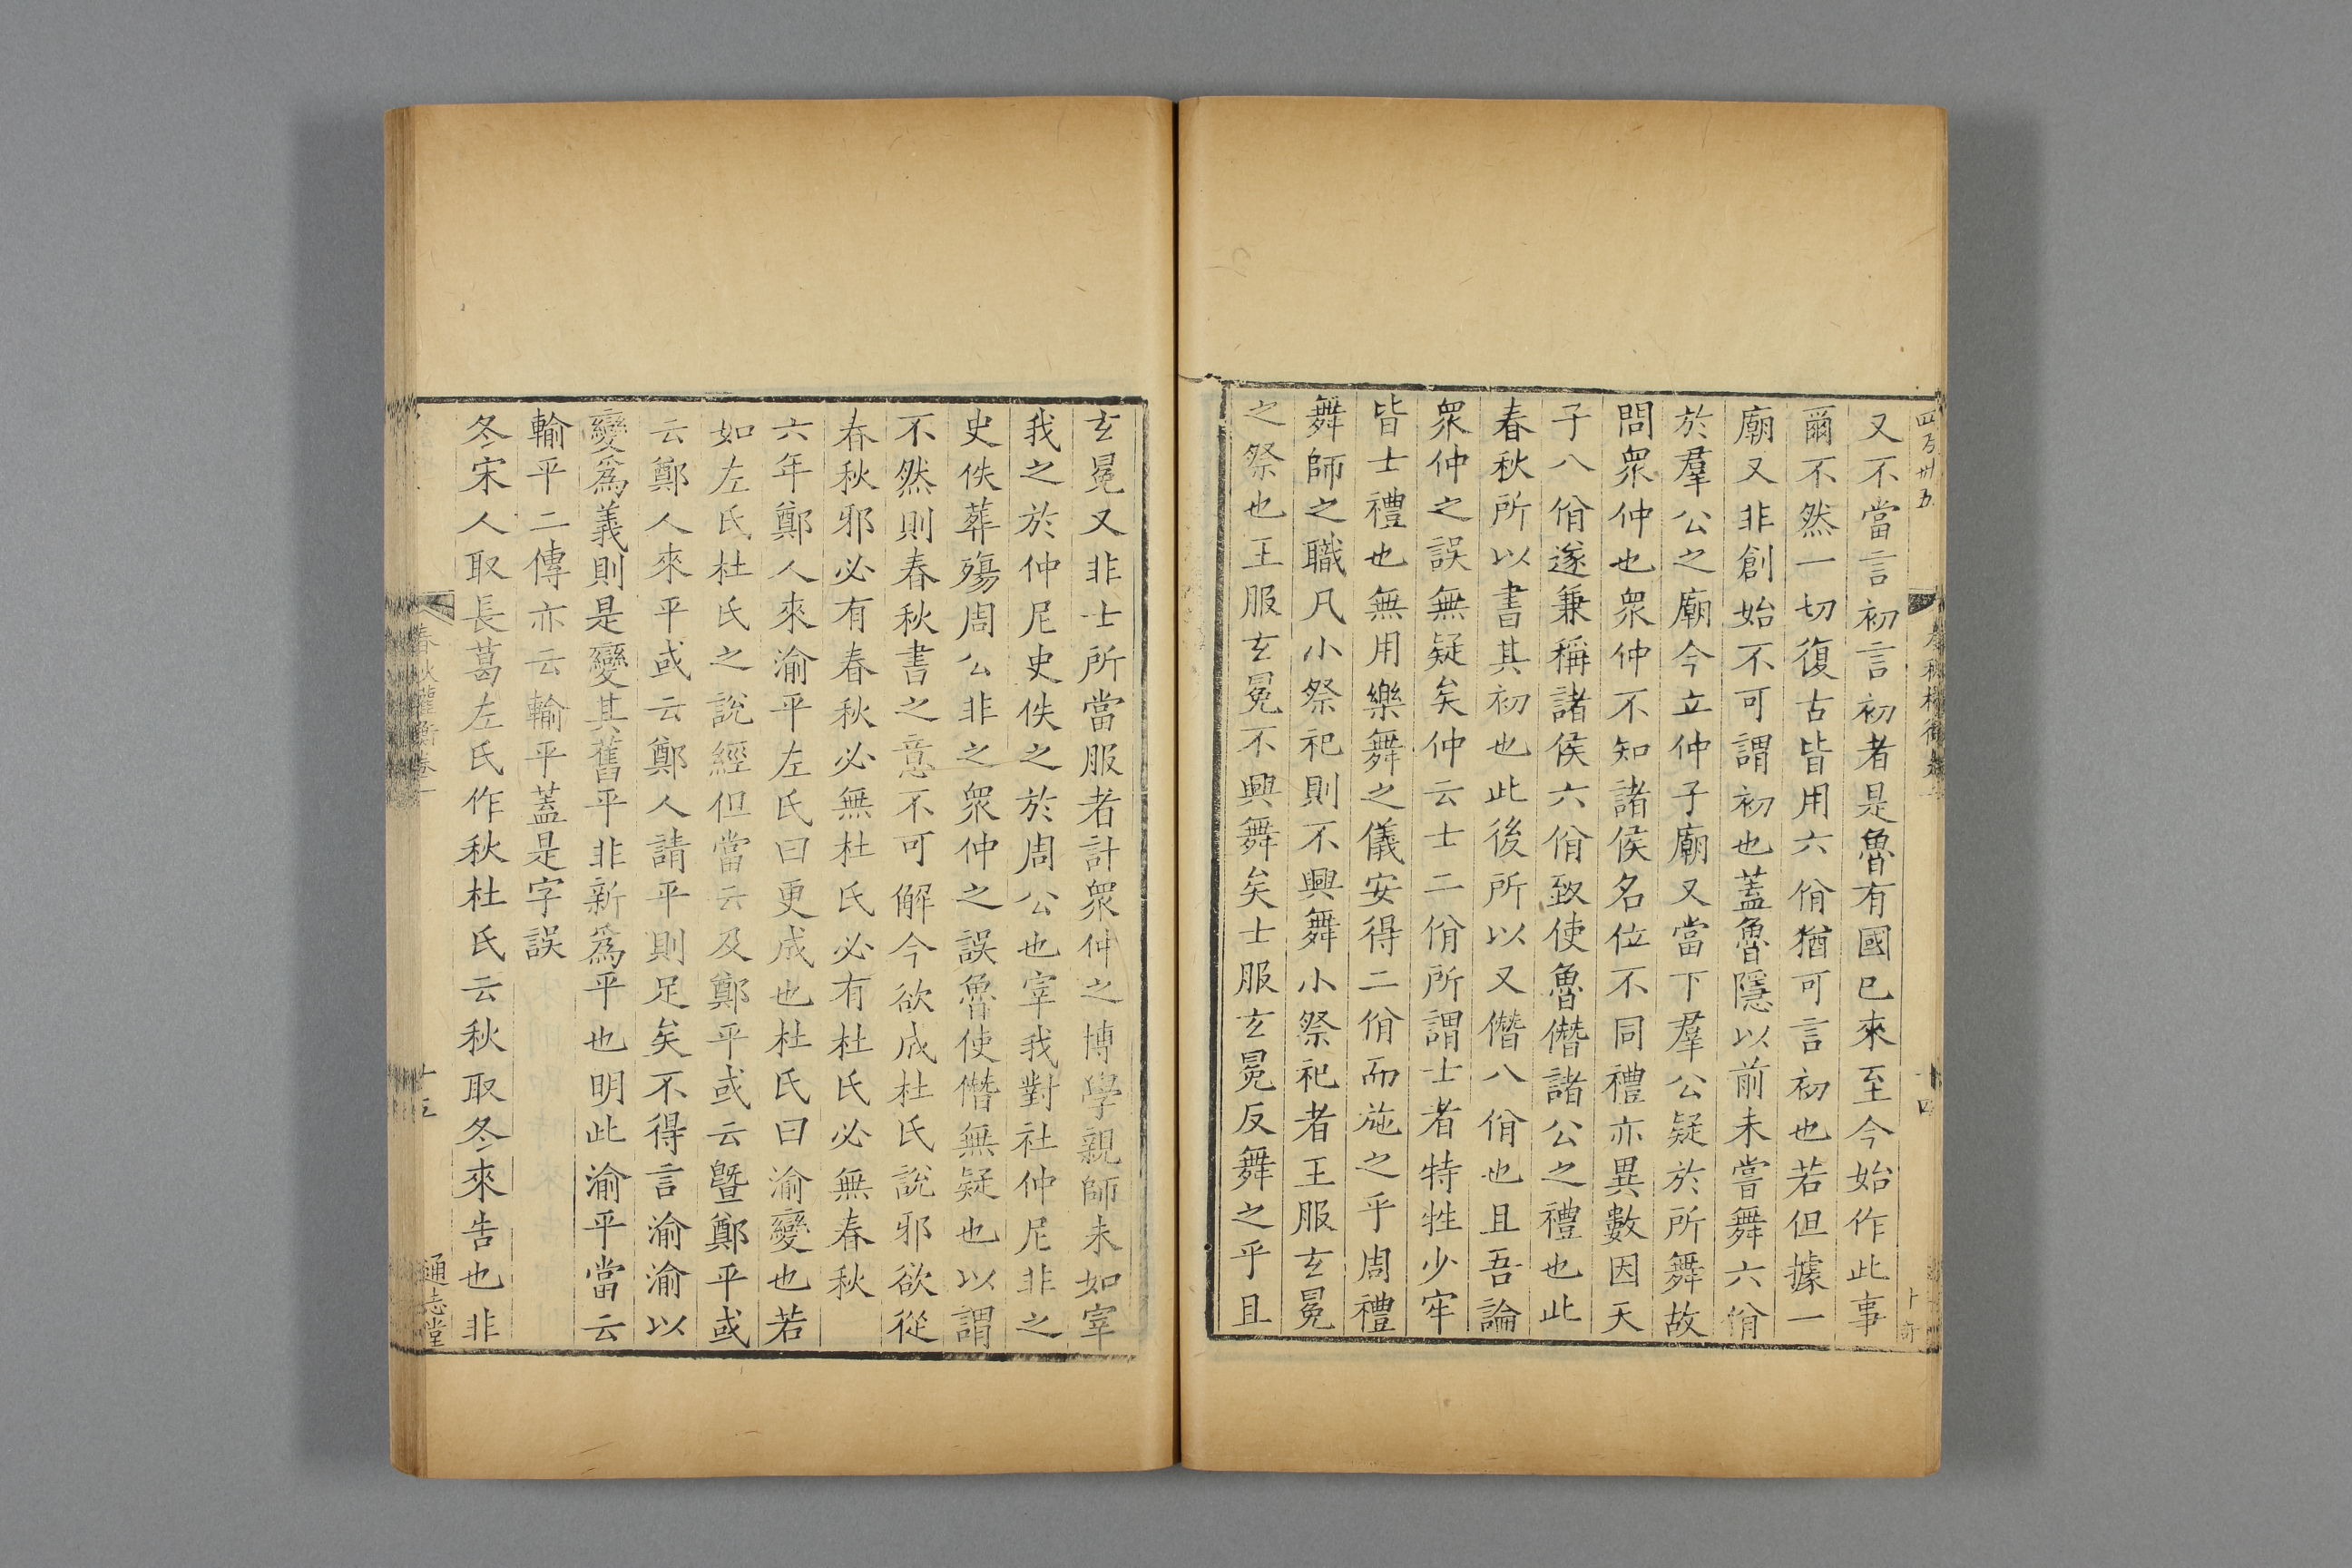 又不當言初言初者是魯有國已來至今始作此事
爾不然一切復古皆用六佾猶可言初也若但據一
廟又非創始不可謂初也蓋魯隱以前未嘗舞六佾
於羣公之廟今立仲子廟又當下羣公疑於所舞故
問衆仲也衆仲不知諸侯名位不同禮亦異數因天
子八佾遂兼稱諸侯六佾致使魯僭諸公之禮也此
春秋所以書其初也此後所以又僭八佾也且吾論
衆仲之誤無疑矣仲云士二佾所謂士者特牲少牢
皆士禮也無用樂舞之儀安得二佾而施之乎周禮
舞師之職凡小祭祀則不興舞小祭祀者王服玄冕
之祭也王服玄冕不興舞矣士服玄冕反舞之乎且
玄冕又非士所當服者計衆仲之博學親師未如宰
我之於仲尼史佚之於周公也宰我對社仲尼非之
史佚葬殤周公非之衆仲之誤魯使僭無疑也以謂
不然則春秋書之意不可解今欲成杜氏說邪欲從
春秋邪必有春秋必無杜氏必有杜氏必無春秋
六年鄭人來渝平左氏曰更成也杜氏曰渝變也若
如左氏杜氏之說經但當云及鄭平或云曁鄭平或
云鄭人來平或云鄭人請平則足矣不得言渝渝以
變爲義則是變其舊平非新爲平也明此渝平當云
輸平二傳亦云輸平蓋是字誤
冬宋人取長葛左氏作秋杜氏云秋取冬來告也非
春秋權衡卷一
十五
通志堂